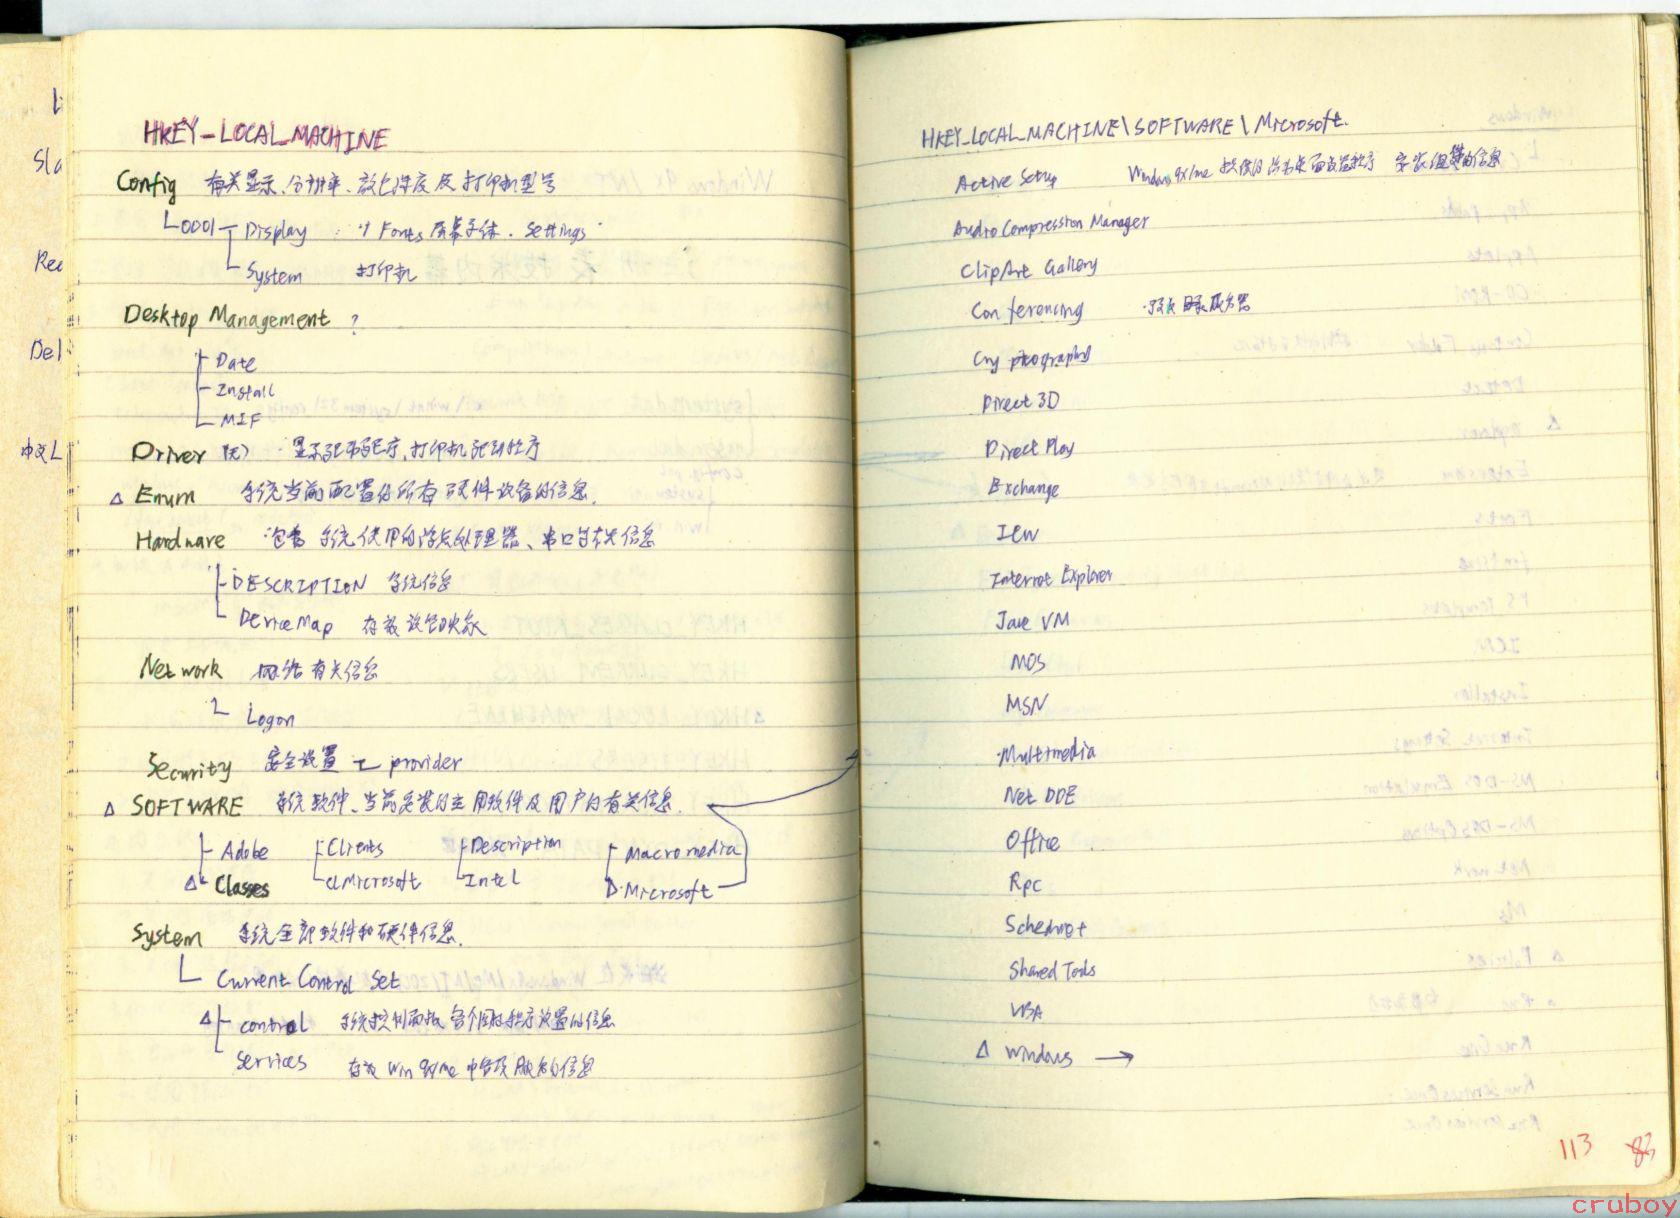 HKEY-LOCAL_MACHINE
Config 有关显示、分辨率、及打印机型号
0001 Display Fonts 屏幕字体. Settings
System 打印机
Desktop Management ?
Date
Install
MIF
Driver (无) 显示驱动程序,打印机驱动程序
△ Enum 系统当前配置的所有硬件设备的信息.
Hardware 包含系统使用的浮点处理器、串口等有关信息
DESCRIPTION 系统信息
DeviceMap 存放设备映象
Network 网络有关信息
Logon
Security 安全设置 provider
△ SOFTWARE 系统软件、当前安装的应用软件及用户的有关信息.
Adobe Clients Description Macromedia
△ Classes clMicrosoft Intel Microsoft
System 系统全部软件和硬件信息.
Current Control Set
△ control 系统控制面板各个图标程序设置的信息
Services 存放 Win 9x/me 中各项服务的信息
HKEY_LOCAL_MACHINE\SOFTWARE\Microsoft.
Active Setup Windows 9x/me 安装组件的信息
Audio Compression Manager
ClipArt Gallery
Conferencing 目录服务器
Cryptography
Direct 3D
Direct Play
Exchange
ICW
Internet Explorer
Java VM
MOS
MSN
Multimedia
Net DDE
Office
Rpc
Schedule+
Shared Tools
VBA
△ Windows →
113 83
cruboy